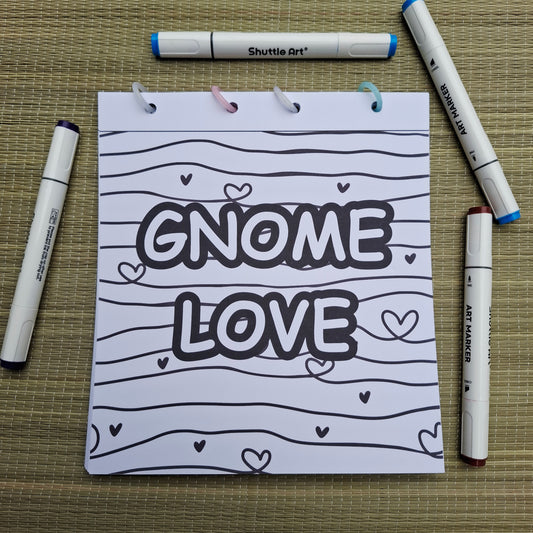 Shuttle Art®
ART MARKER
GNOME
LOVE
ART MARKER